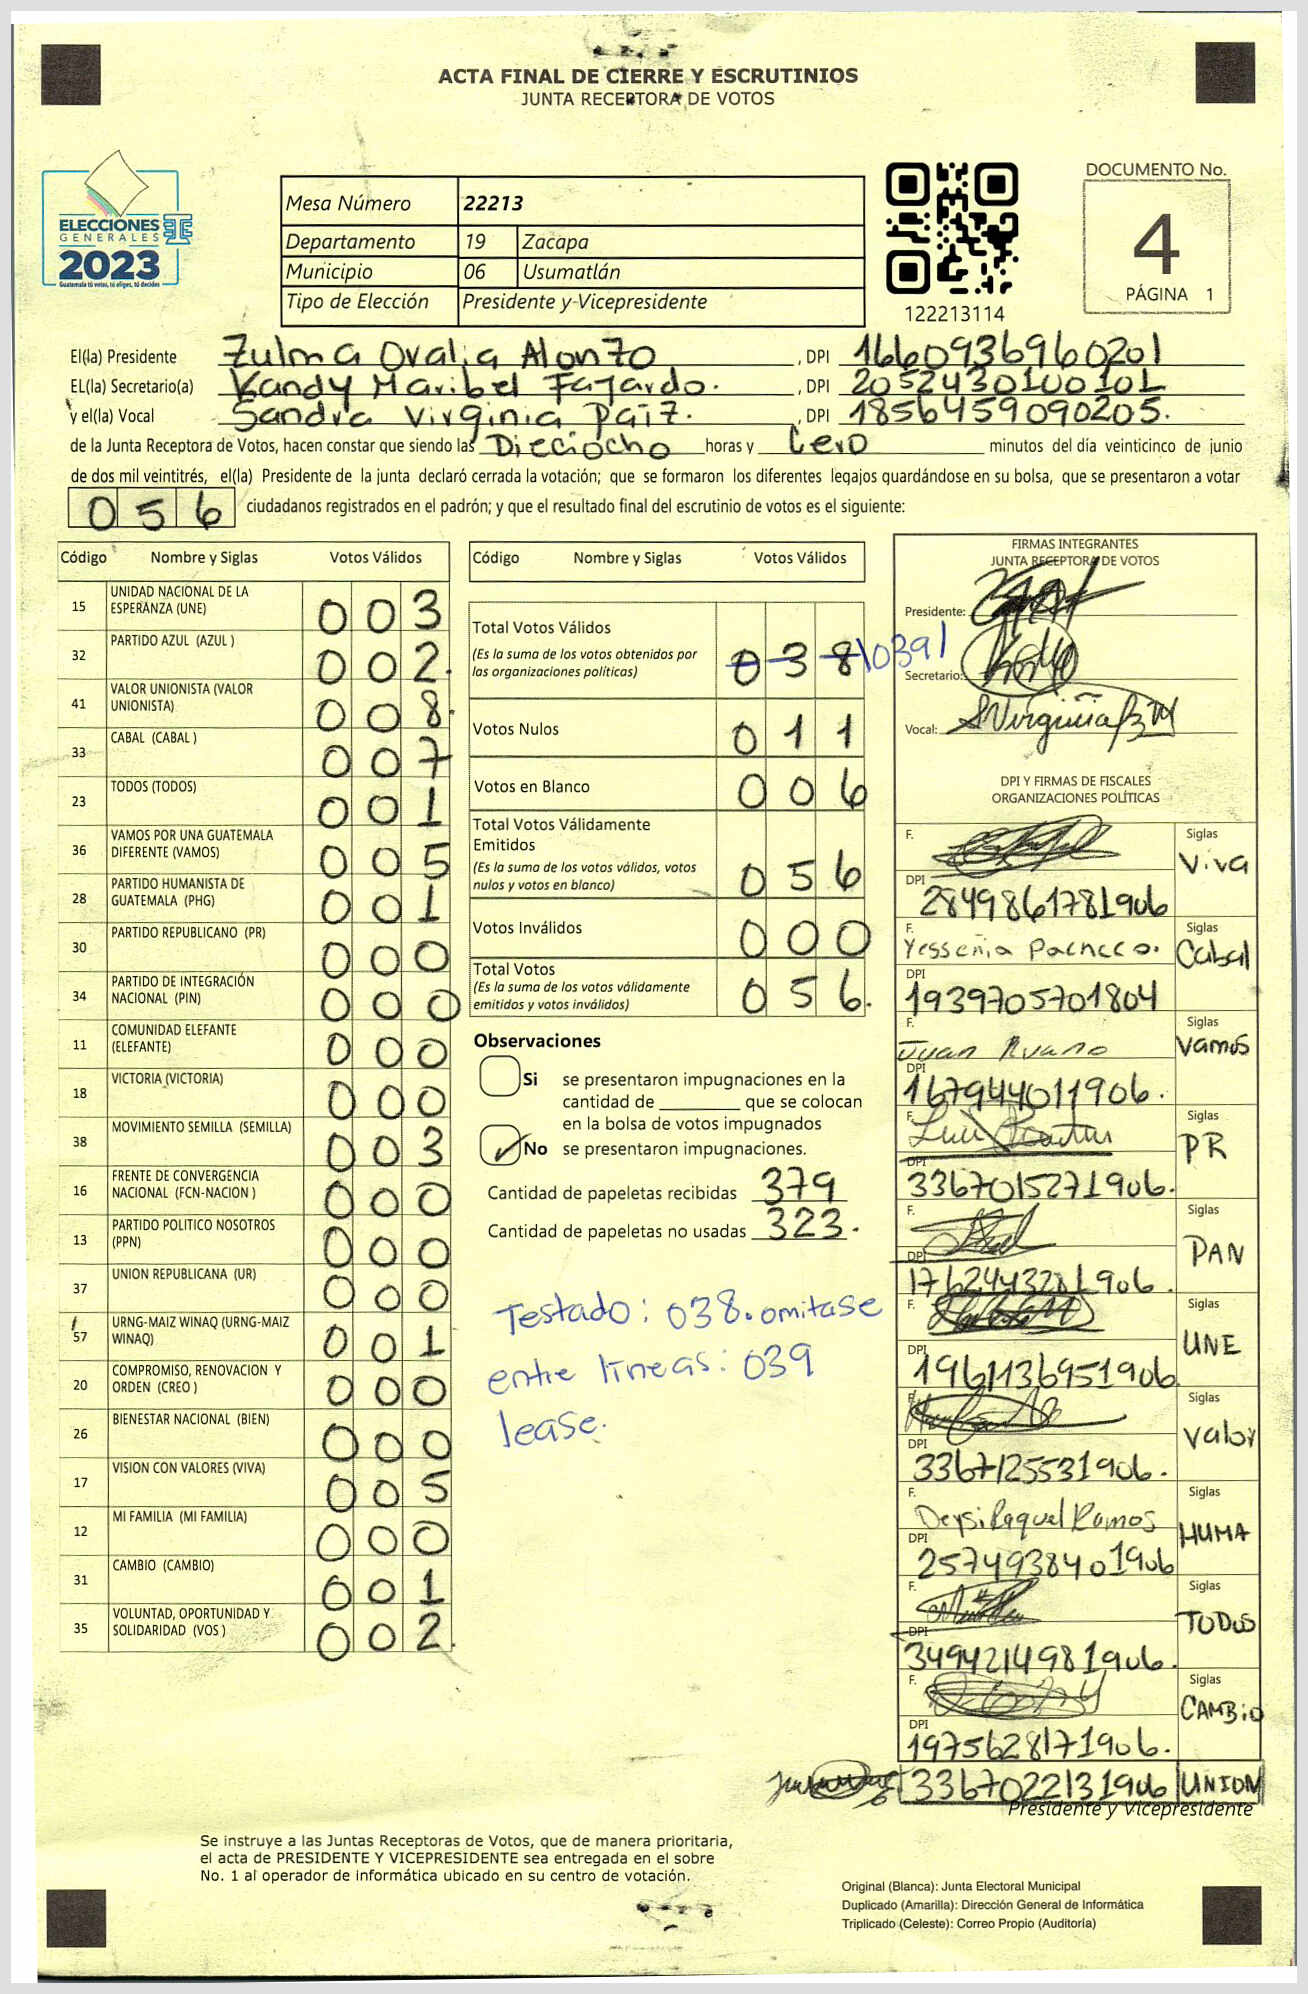 ACTA FINAL DE CIERRE Y ESCRUTINIOS
JUNTA RECEPTORA DE VOTOS
ELECCIONES
GENERALES
2023
Guatemala tú votas, tú eliges, tú decides
Mesa Número 22213
Departamento 19 Zacapa
Municipio 06 Usumatlán
Tipo de Elección Presidente y Vicepresidente
122213114
DOCUMENTO No.
4
PÁGINA 1
El(la) Presidente Zulma Ovalia Alonzo, DPI 1660936960201
EL(la) Secretario(a) Kandy Maribel Fajardo., DPI 2052430100101
y el(la) Vocal Sandra Virginia Paiz., DPI 1856459090205.
de la Junta Receptora de Votos, hacen constar que siendo las Dieciocho horas y Cero minutos del día veinticinco de junio
de dos mil veintitrés, el(la) Presidente de la junta declaró cerrada la votación; que se formaron los diferentes legajos guardándose en su bolsa, que se presentaron a votar
056 ciudadanos registrados en el padrón; y que el resultado final del escrutinio de votos es el siguiente:
Código Nombre y Siglas Votos Válidos
15 UNIDAD NACIONAL DE LA ESPERANZA (UNE) 003
32 PARTIDO AZUL (AZUL ) 002.
41 VALOR UNIONISTA (VALOR UNIONISTA) 008.
33 CABAL (CABAL ) 007
23 TODOS (TODOS) 001
36 VAMOS POR UNA GUATEMALA DIFERENTE (VAMOS) 005
28 PARTIDO HUMANISTA DE GUATEMALA (PHG) 001
30 PARTIDO REPUBLICANO (PR) 000
34 PARTIDO DE INTEGRACIÓN NACIONAL (PIN) 000
11 COMUNIDAD ELEFANTE (ELEFANTE) 000
18 VICTORIA (VICTORIA) 000
38 MOVIMIENTO SEMILLA (SEMILLA) 003
16 FRENTE DE CONVERGENCIA NACIONAL (FCN-NACION ) 000
13 PARTIDO POLITICO NOSOTROS (PPN) 000
37 UNION REPUBLICANA (UR) 000
57 URNG-MAIZ WINAQ (URNG-MAIZ WINAQ) 001
20 COMPROMISO, RENOVACION Y ORDEN (CREO ) 000
26 BIENESTAR NACIONAL (BIEN) 000
17 VISION CON VALORES (VIVA) 005
12 MI FAMILIA (MI FAMILIA) 000
31 CAMBIO (CAMBIO) 001
35 VOLUNTAD, OPORTUNIDAD Y SOLIDARIDAD (VOS ) 002.
Código Nombre y Siglas Votos Válidos
Total Votos Válidos
(Es la suma de los votos obtenidos por
las organizaciones políticas) 038 \039\
Votos Nulos 011
Votos en Blanco 006
Total Votos Válidamente
Emitidos
(Es la suma de los votos válidos, votos
nulos y votos en blanco) 056
Votos Inválidos 000
Total Votos
(Es la suma de los votos válidamente
emitidos y votos inválidos) 056.
Observaciones
Si se presentaron impugnaciones en la
cantidad de ________ que se colocan
en la bolsa de votos impugnados
No se presentaron impugnaciones.
Cantidad de papeletas recibidas 379
Cantidad de papeletas no usadas 323.
Testado: 038. omitase
entre lineas: 039
lease.
FIRMAS INTEGRANTES
JUNTA RECEPTORA DE VOTOS
Presidente:
Secretario:
Vocal: S Virginia
DPI Y FIRMAS DE FISCALES
ORGANIZACIONES POLÍTICAS
F. Siglas Viva
DPI 2849861781906
F. Yessenia Pacheco. Siglas Cabal
DPI 1939705701804
F. Juan Ruano Siglas Vamos
DPI 167944011906.
F. Siglas PR
DPI 3367015271906.
F. Siglas PAN
DPI 1762443281906.
F. Siglas UNE
DPI 1961136951906
F. Siglas Valor
DPI 3367125531906.
F. Deysi Raquel Ramos Siglas HUMA
DPI 2574938401906
F. Siglas TODOS
DPI 3494214981906.
F. Siglas CAMBIO
DPI 1975628171906.
3367022131906 UNION
Presidente y Vicepresidente
Se instruye a las Juntas Receptoras de Votos, que de manera prioritaria,
el acta de PRESIDENTE Y VICEPRESIDENTE sea entregada en el sobre
No. 1 al operador de informática ubicado en su centro de votación.
Original (Blanca): Junta Electoral Municipal
Duplicado (Amarilla): Dirección General de Informática
Triplicado (Celeste): Correo Propio (Auditoría)